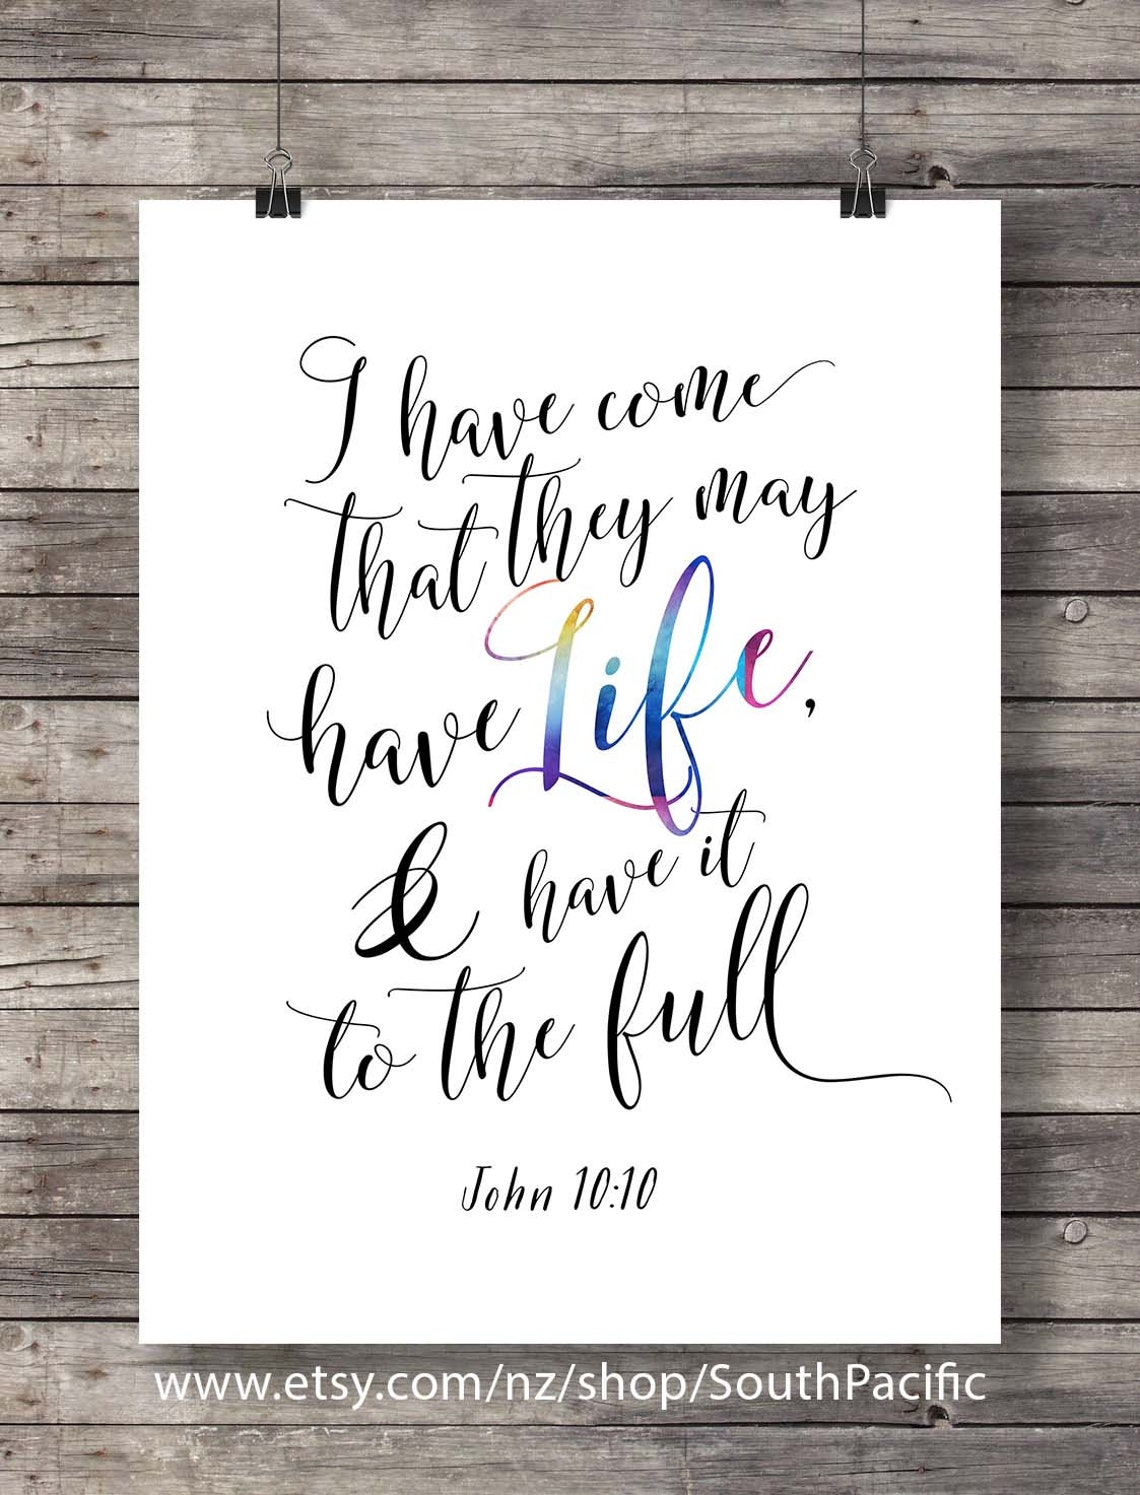 I have come
that they may
have Life,
& have it
to the full
John 10:10
www.etsy.com/nz/shop/SouthPacific